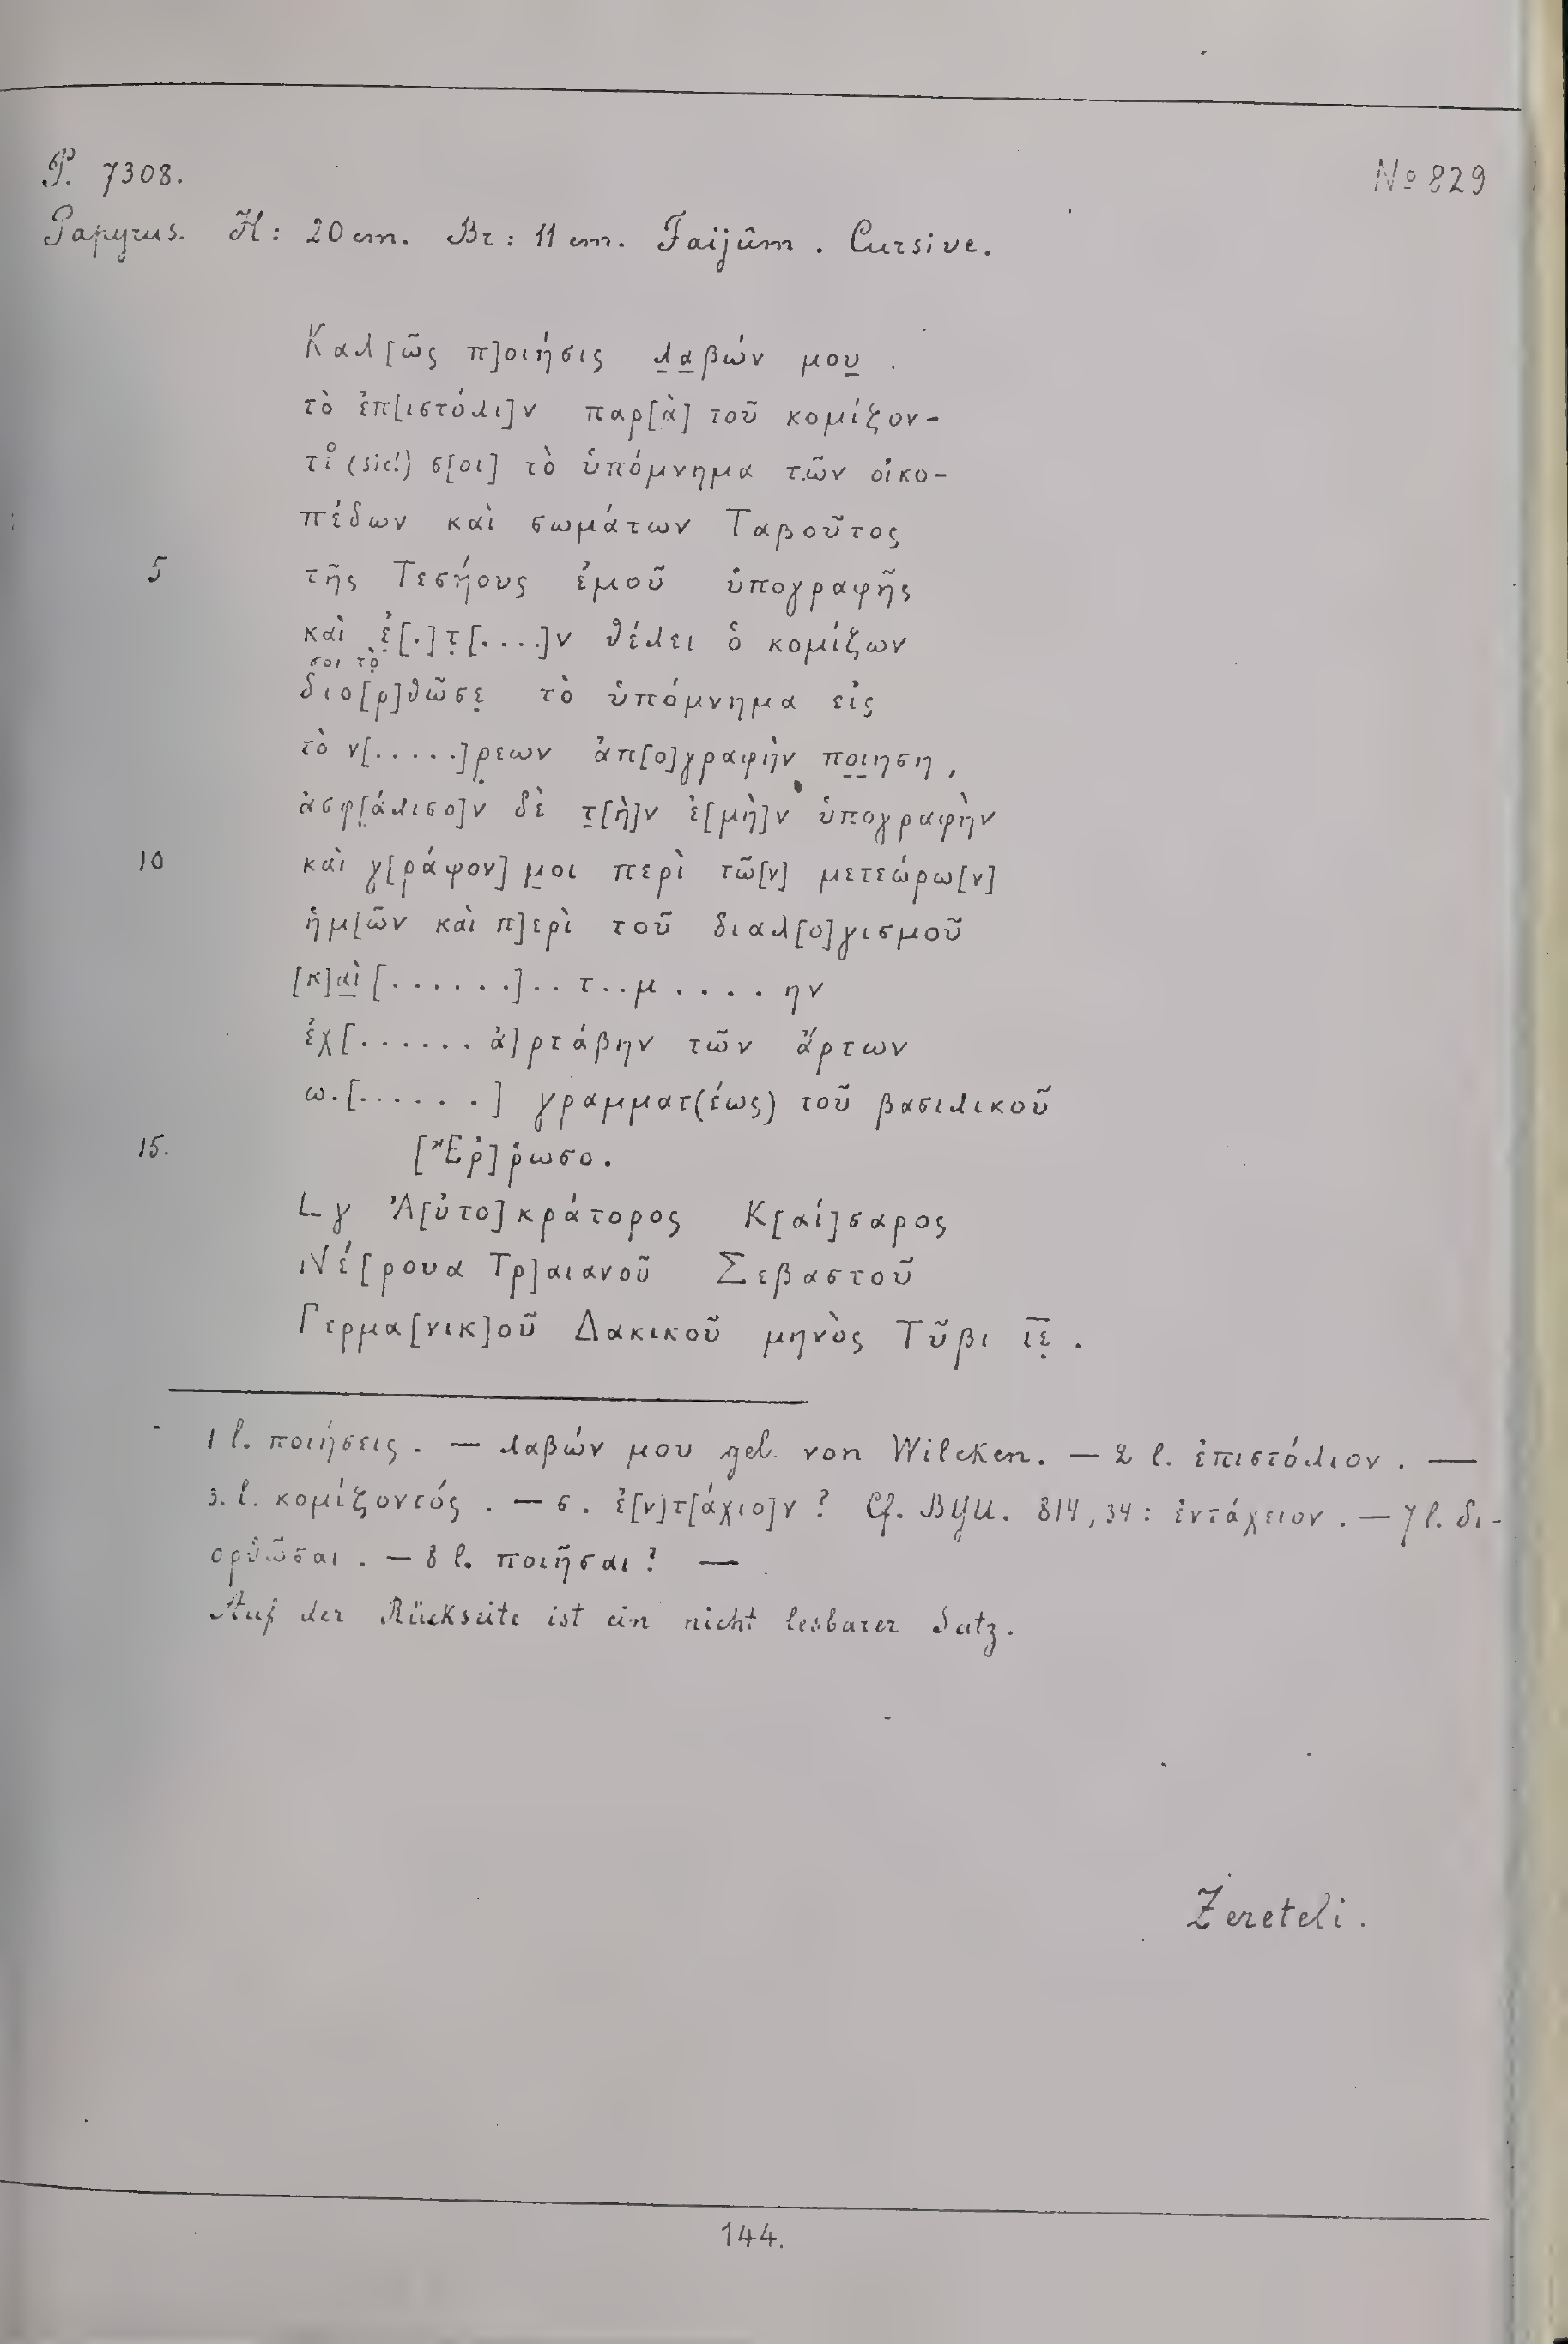 P. 7308. No 829
Papyrus. H: 20 cm. Br: 11 cm. Faijûm. Cursive.
Καλ[ῶς π]οιήσις λ̲α̲βών μου̲ .
τὸ ἐπ[ιστόλι]ν παρ[ὰ] τοῦ κομίζον-
τι̊ (sic!) σ[οι] τὸ ὑπόμνημα τῶν οἰκο-
πέδων καὶ σωμάτων Ταβοῦτος
5 τῆς Τεσήους ἐμοῦ ὑπογραφῆς
καὶ ἐ̣[.]τ̣[....]ν θέλει ὁ κομίζων
σοι τὸ̣
διο[ρ]θῶσε̣ τὸ ὑπόμνημα εἰς
τὸ ν[.....]ρ̣εων ἀπ[ο]γραφὴν πο̲ι̲ηση,
ἀσφ[άλισο]ν δὲ τ̲[ὴ]ν ἐ[μὴ]ν ὑπογραφὴν
10 καὶ γ[ράψον] μ̲οι περὶ τῶ[ν] μετεώρω[ν]
ἡμ[ῶν καὶ π]ερὶ τοῦ διαλ[ο]γισμοῦ
[κ]α̲ὶ̲ [......]..τ..μ....ην
ἐχ[...... ἀ]ρτάβην τῶν ἄρτων
ω.[......] γραμματ(έως) τοῦ βασιλικοῦ
15. [Ἔρ]ρωσο.
L γ Ἀ[ὐτο]κράτορος Κ[αί]σαρος
Νέ[ρουα Τρ]αιανοῦ Σεβαστοῦ
Γερμα[νικ]οῦ Δακικοῦ μηνὸς Τῦβι ι̅ε̣̅ .
1 l. ποιήσεις. — λαβών μου gel. von Wilcken. — 2 l. ἐπιστόλιον. —
3. l. κομίζοντός. — 6. ἐ[ν]τ[άχιο]ν? Cf. BGU. 814, 34: ἐντάχειον. — 7 l. δι-
ορθῶσαι. — 8 l. ποιῆσαι? —
Auf der Rückseite ist ein nicht lesbarer Satz.
Zereteli.
144.